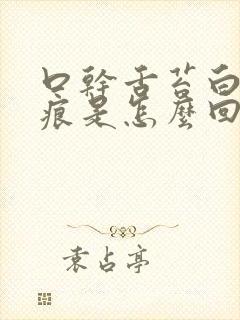 口幹舌苔白
痕是怎麼回
袁占亭